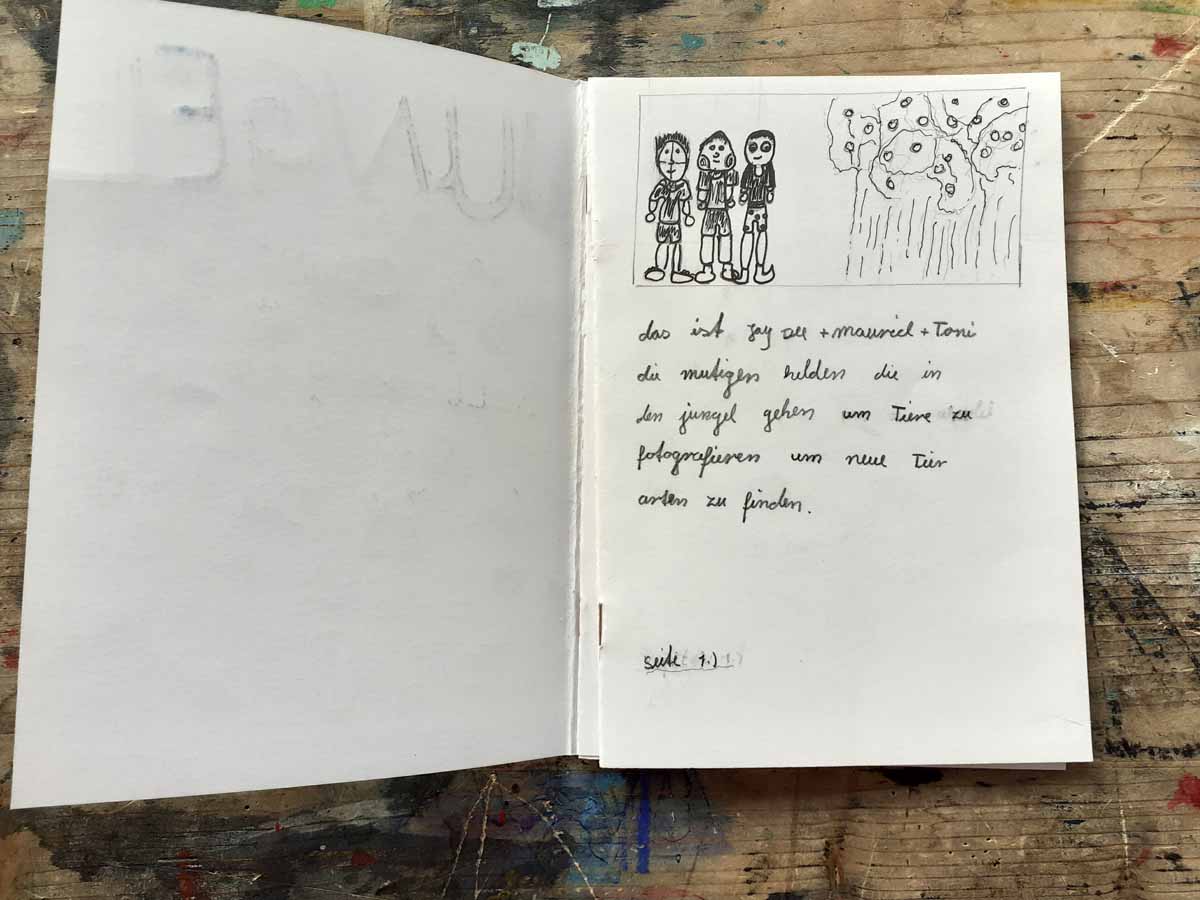 das ist Jay Dee + mauricl + Toni
die mutigen helden die in
den jungel gehen um Tiere zu
fotografieren um neue Tier
arten zu finden.
seite 1.)